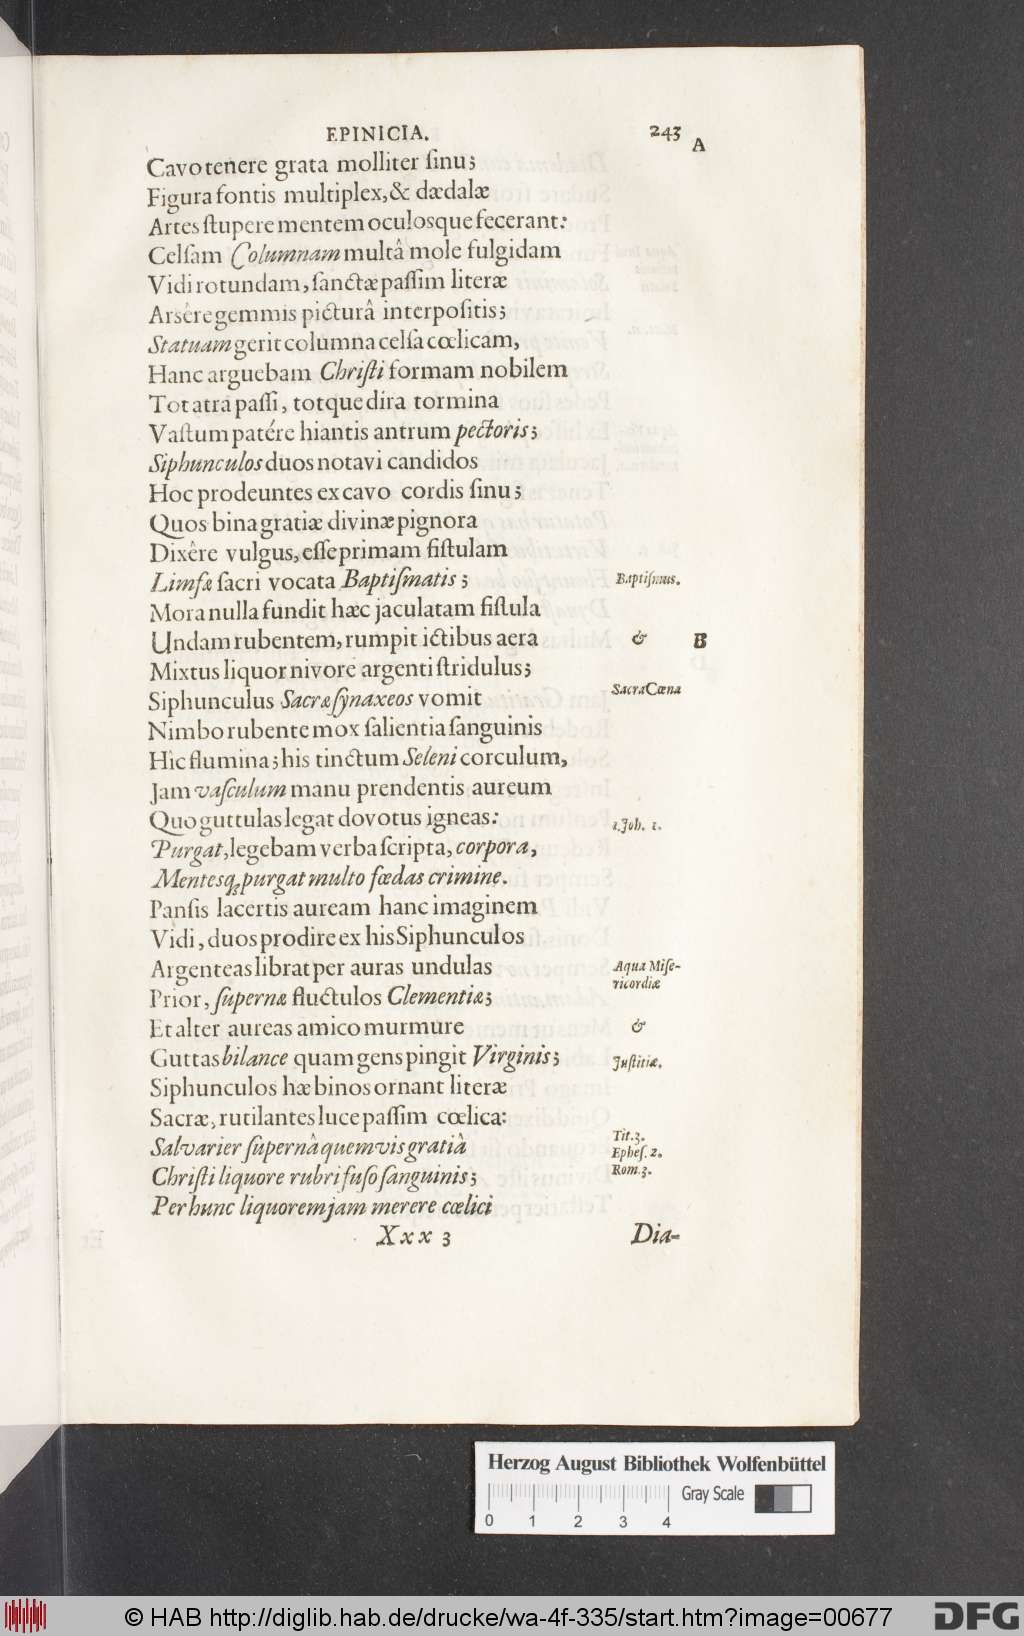 EPINICIA. 243
A
Cavo tenere grata molliter ſinu;
Figura fontis multiplex, & dædalæ
Artes ſtupere mentem oculosque fecerant:
Celſam Columnam multâ mole fulgidam
Vidi rotundam, ſanctæ paſſim literæ
Arsêre gemmis picturâ interpoſitis;
Statuam gerit columna celſa cœlicam,
Hanc arguebam Chriſti formam nobilem
Tot atra paſſi, totque dira tormina
Vaſtum patére hiantis antrum pectoris;
Siphunculos duos notavi candidos
Hoc prodeuntes ex cavo cordis ſinu;
Quos bina gratiæ divinæ pignora
Dixêre vulgus, eſſe primam fiſtulam
Limfæ ſacri vocata Baptiſmatis; Baptiſmus.
Mora nulla fundit hæc jaculatam fiſtula
Undam rubentem, rumpit ictibus aera & B
Mixtus liquor nivore argenti ſtridulus;
Siphunculus Sacræ ſynaxeos vomit Sacra Cœna
Nimbo rubente mox ſalientia ſanguinis
Hic flumina; his tinctum Seleni corculum,
Jam vaſculum manu prendentis aureum
Quo guttulas legat dovotus igneas: 1. Joh. 1.
Purgat, legebam verba ſcripta, corpora,
Mentesq; purgat multo fœdas crimine.
Panſis lacertis auream hanc imaginem
Vidi, duos prodire ex his Siphunculos
Argenteas librat per auras undulas Aqua Miſe-
ricordiæ
Prior, ſupernæ fluctulos Clementiæ;
Et alter aureas amico murmure &
Guttas bilance quam gens pingit Virginis; Juſtitiæ.
Siphunculos hæ binos ornant literæ
Sacræ, rutilantes luce paſſim cœlica:
Salvarier ſupernâ quemvis gratiâ Tit. 3.
Epheſ. 2.
Chriſti liquore rubri fuſo ſanguinis; Rom. 3.
Per hunc liquorem jam merere cœlici
Xxx 3 Dia-
Herzog August Bibliothek Wolfenbüttel
Gray Scale
0 1 2 3 4
© HAB http://diglib.hab.de/drucke/wa-4f-335/start.htm?image=00677
DFG